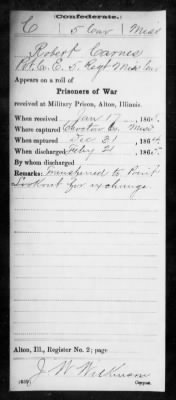 Confederate.
C 5 Cav Miss
Robert Carnes
Pvt. Co. E. 5 Regt Miss Cav
Appears on a roll of
Prisoners of War
received at Military Prison, Alton, Illinois.
When received Jan 17, 1865.
Where captured Choctaw Co. Miss
When captured Dec 31, 1864.
When discharged Feby 21, 1865
By whom discharged
Remarks: Transferred to Point
Lookout for exchange.
Alton, Ill., Register No. 2; page
J. W. Wilkinson
Copyist.